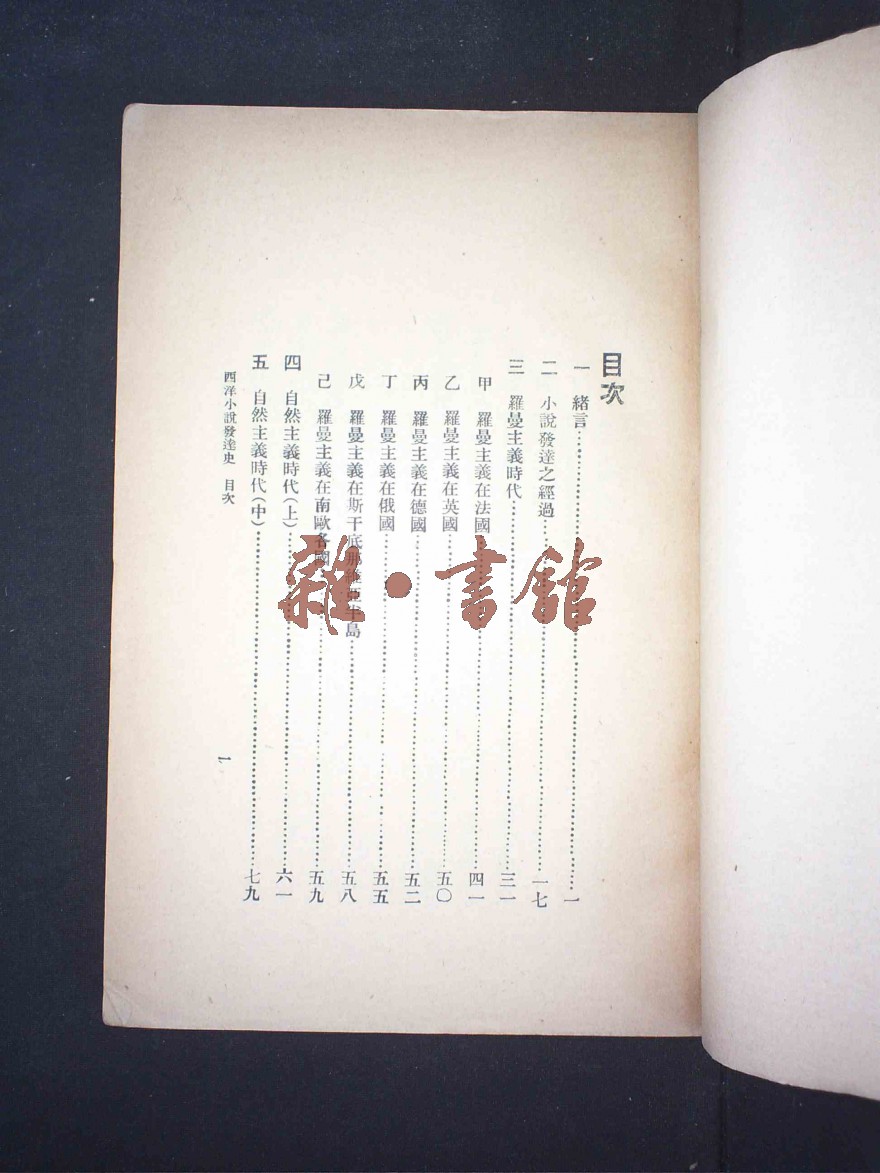 目次
一 緒言……一
二 小說發達之經過……一七
三 羅曼主義時代……三一
甲 羅曼主義在法國……四一
乙 羅曼主義在英國……五〇
丙 羅曼主義在德國……五二
丁 羅曼主義在俄國……五五
戊 羅曼主義在斯干底那維亞半島……五八
己 羅曼主義在南歐各國……五九
四 自然主義時代(上)……六一
五 自然主義時代(中)……七九
西洋小說發達史 目次
一
雜·書館